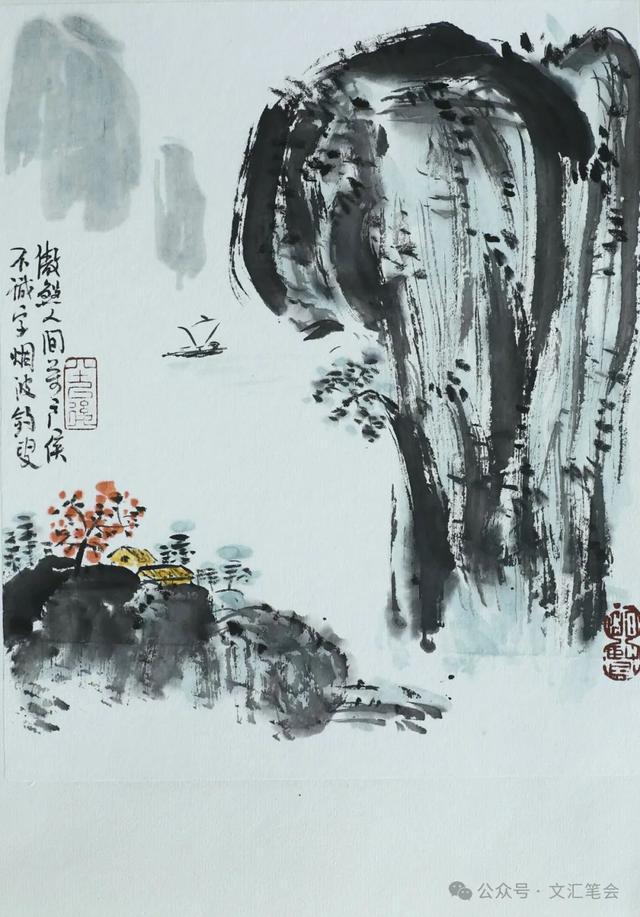 傲然人间万户侯
不识字烟波钓叟
公众号·文汇笔会